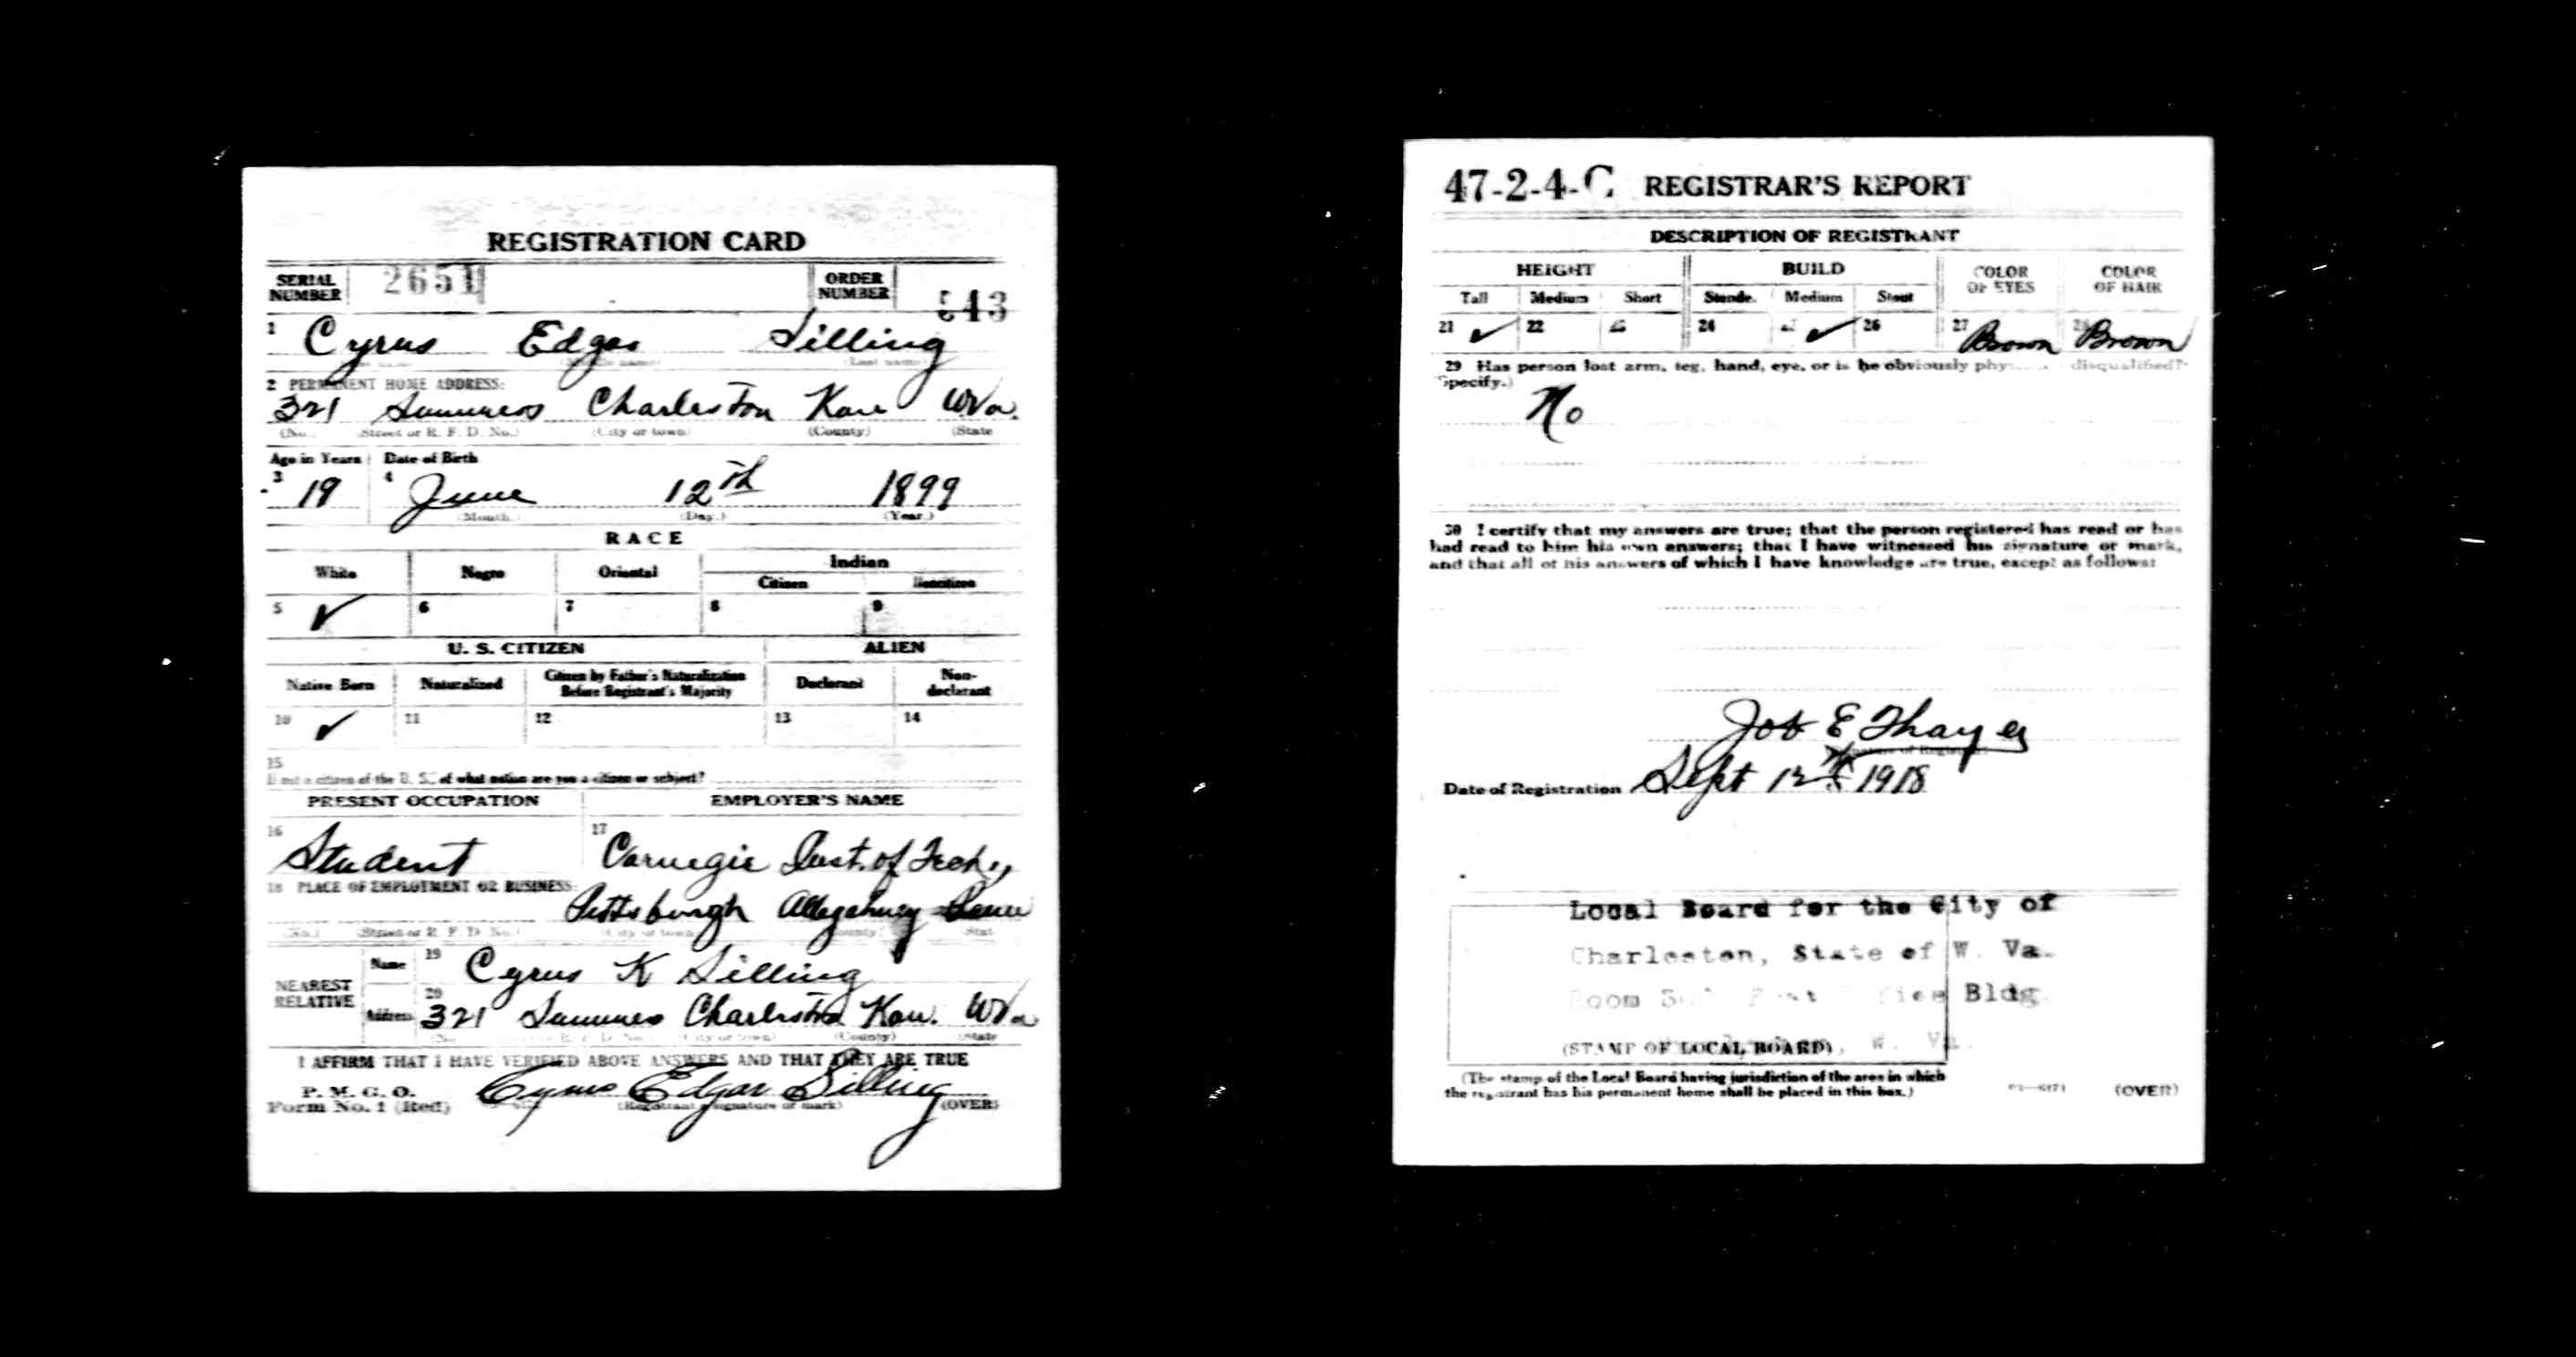 REGISTRATION CARD
SERIAL NUMBER 2651 ORDER NUMBER 543
1 Cyrus Edgar Silling
2 PERMANENT HOME ADDRESS:
321 Summers Charleston Kan WVa.
(No.) (Street or R. F. D. No.) (City or town) (County) (State
Age in Years Date of Birth
3 19 4 June 12th 1899
(Month.) (Day.) (Year.)
RACE
White Negro Oriental Indian
Citizen Noncitizen
5 ✓ 6 7 8 9
U. S. CITIZEN ALIEN
Native Born Naturalized Citizen by Father's Naturalization Before Registrant's Majority Declarant Non-declarant
10 ✓ 11 12 13 14
15
If not a citizen of the U. S., of what nation are you a citizen or subject?
PRESENT OCCUPATION EMPLOYER'S NAME
16 Student 17 Carnegie Inst. of Tech.,
18 PLACE OF EMPLOYMENT OR BUSINESS:
Pittsburgh Allegahney Penn
(No.) (Street or R. F. D. No.) (City or town) (County) (State
NEAREST RELATIVE Name 19 Cyrus K Silling
Address 20 321 Summers Charleston Kan. WVa
(City or town) (County) (State
I AFFIRM THAT I HAVE VERIFIED ABOVE ANSWERS AND THAT THEY ARE TRUE
P. M. G. O.
Form No. 1 (Red) Cyrus Edgar Silling
(Registrant's signature or mark) (OVER)
47-2-4-C REGISTRAR'S REPORT
DESCRIPTION OF REGISTRANT
HEIGHT BUILD COLOR OF EYES COLOR OF HAIR
Tall Medium Short Slender Medium Stout
21 ✓ 22 23 24 25 ✓ 26 27 Brown 28 Brown
29 Has person lost arm, leg, hand, eye, or is he obviously phy disqualified?
Specify.)
No
30 I certify that my answers are true; that the person registered has read or has
had read to him his own answers; that I have witnessed his signature or mark,
and that all of his answers of which I have knowledge are true, except as follows:
Job E Thayer
(Signature of Registrar)
Date of Registration Sept 12th 1918
Local Board for the City of
Charleston, State of W. Va.
Room Post Office Bldg.
(STAMP OF LOCAL BOARD) W. Va.
(The stamp of the Local Board having jurisdiction of the area in which
the registrant has his permanent home shall be placed in this box.)
(OVER)